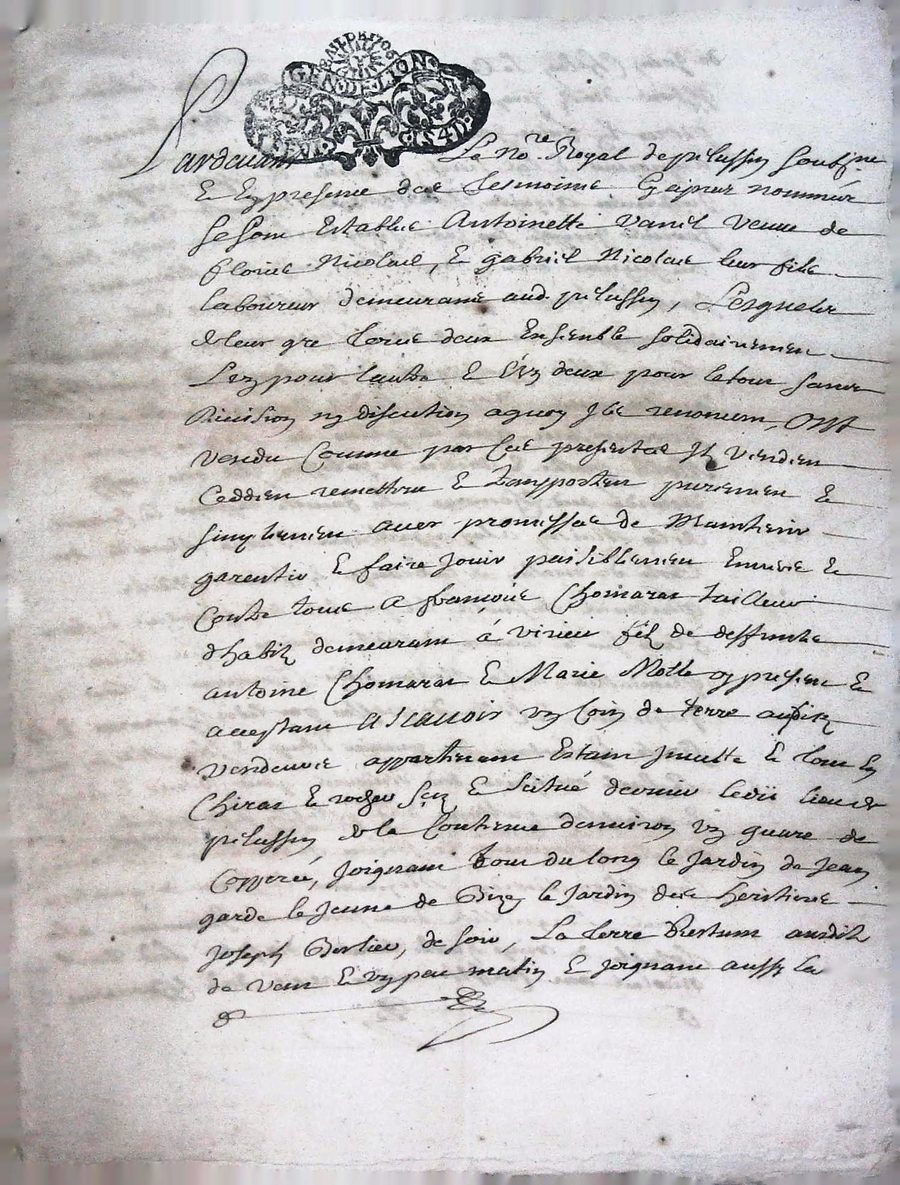 BAIL DE 1706
GEN. DE LION
Pardevant Le no.re Royal de pelussin soubs.ne
Et En presence des tesmoins Et apres nommés
Se sont Establis Antoinette Vanel veuve de
floris Nicolas, Et gabriel Nicolas leur fils
laboureur demeurans aud. pelussin, Lesquels
de leur gre tous deux Ensemble solidairemen
L'un pour lautre Et l'un deux pour le tout sans
Division ny discution a quoy Ils renoncen, ONT
vendu Comme par Ces presentes Ilz venden
Cedden remetten Et transporten puremen Et
simplemen avec promesses de Maintenir
garentir Et faire Jouir paisiblemen Envers Et
Contre tous A françois Chomarat tailleur
d'habit demeurant à virieu filz de deffuncts
antoine Chomarat Et Marie Motte cy presen Et
acceptant Ascavoir un Coin de terre ausditz
vendeurs appartenant Estant Inculte Et tout En
Chirat Et rocher sis Et scitué derrier ledit lieu de
pelussin de la Contenue denviron un quare de
Couppée, Joignant tout du long le Jardin de Jean
garde le Jeune de Bize le Jardin des heritiers
Joseph Borlieu, de soir, La terre Restant ausditz
de vent Et un peu matin Et Joignant aussy la